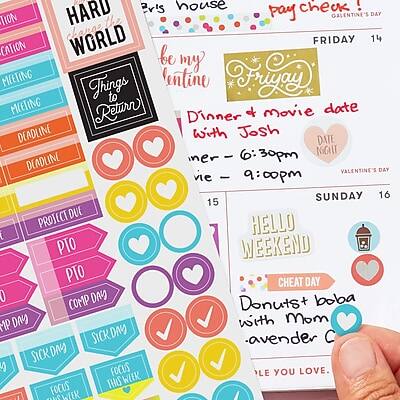 HARD
change the
WORLD
VACATION
MEETING
MEETING
DEADLINE
DEADLINE
Things
to
Return
PROJECT DUE
PTO
PTO
COMP DAY
COMP DAY
SICK DAY
SICK DAY
FOCUS
THIS WEEK
FOCUS
THIS WEEK
house
paycheck!
GALENTINE'S DAY
FRIDAY 14
be my
valentine
Friyay
Dinner & movie date
with Josh
- 6:30pm
- 9:00pm
DATE
NIGHT
VALENTINE'S DAY
15
SUNDAY 16
HELLO
WEEKEND
CHEAT DAY
Donuts + boba
with Mom
YOU LOVE.